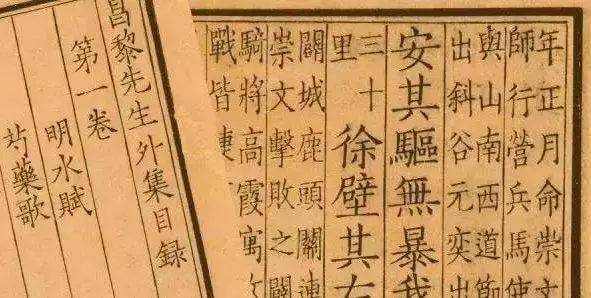 年正月命崇文
師行營兵馬使
與山南西道節
出斜谷元奕出
安其驅無暴我
三十
里
徐壁其
關城鹿頭關連
崇文擊敗之關
騎將高霞寓攻
戰皆
昌黎先生外集目録
第一卷
明水賦
芍藥歌